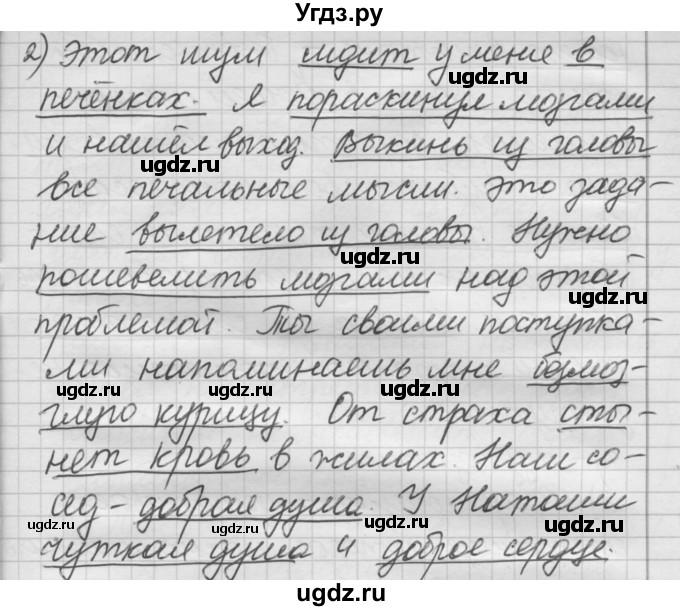 Угдз.ру
2) Этот шум сидит у меня в
печёнках. Я пораскинул мозгами
и нашёл выход. Выкинь из головы
все печальные мысли. Это зада-
ние вылетело из головы. Нужно
пошевелить мозгами над этой
проблемой. Ты своими поступка-
ми напоминаешь мне безмоз-
глую курицу. От страха сты-
нет кровь в жилах. Наш со-
сед - добрая душа. У Наташи
чуткая душа и доброе сердце.
ugdz.ru
ugdz.ru
ugdz.ru
ugdz.ru
ugdz.ru
ugdz.ru
ugdz.ru
ugdz.ru
ugdz.ru
ugdz.ru
ugdz.ru
ugdz.ru
ugdz.ru
ugdz.ru